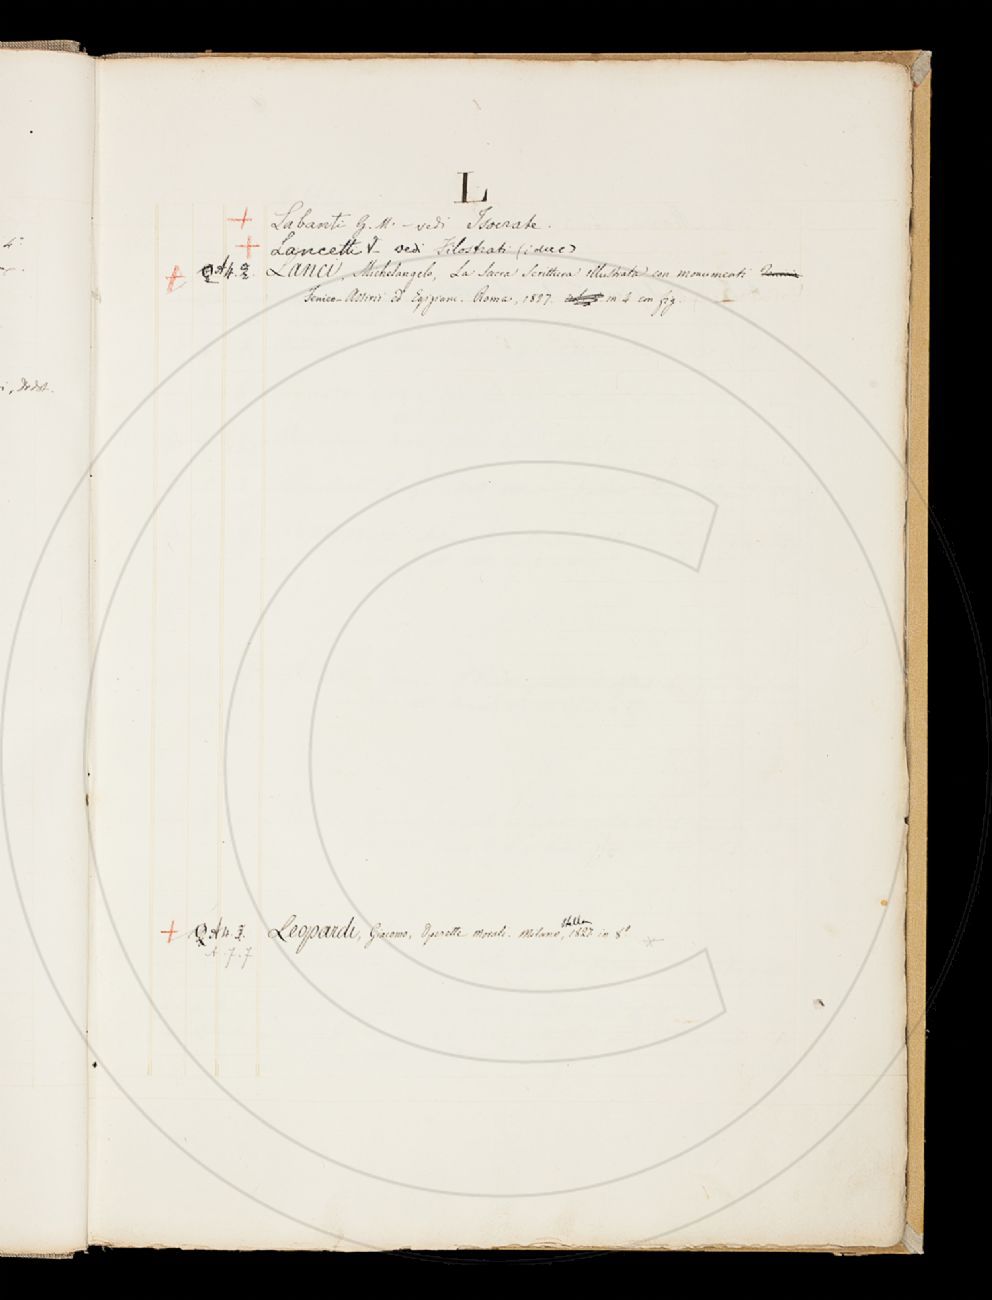 L
+ Labanti G. M. - vedi Isocrate.
+ Lancetti V. vedi Filostrati (i due)
+ Lanci, Michelangelo, La Sacra Scrittura illustrata con monumenti
Fenico-Assirii ed Egiziani. Roma, 1827. in 4 con fig.
+ Leopardi, Giacomo, Operette Morali. Milano, Stella 1827 in 8°
A. 7. 7
4°